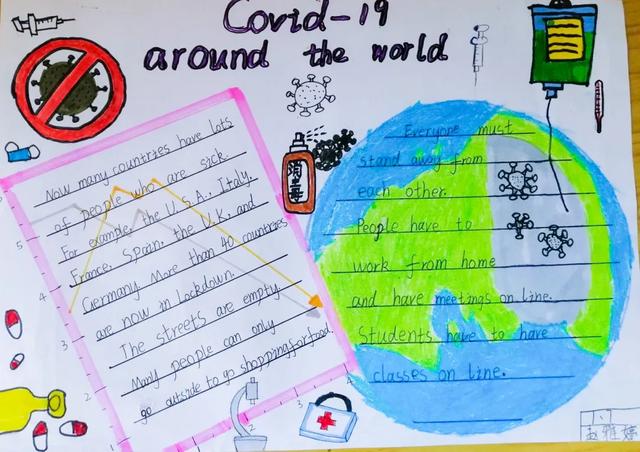 Covid-19
around the world
Now many countries have lots
of people who are sick.
For example, the U.S.A., Italy,
France, Spain, the U.K. and
Germany. More than 40 countries
are now in Lockdown.
The streets are empty
Many people can only
go outside to go shopping for food.
5
4
3
2
2
3
4
消毒
Everyone must
stand away from
each other.
People have to
work from home
and have meetings on line.
Students have to have
classes on line.
赵雅婷